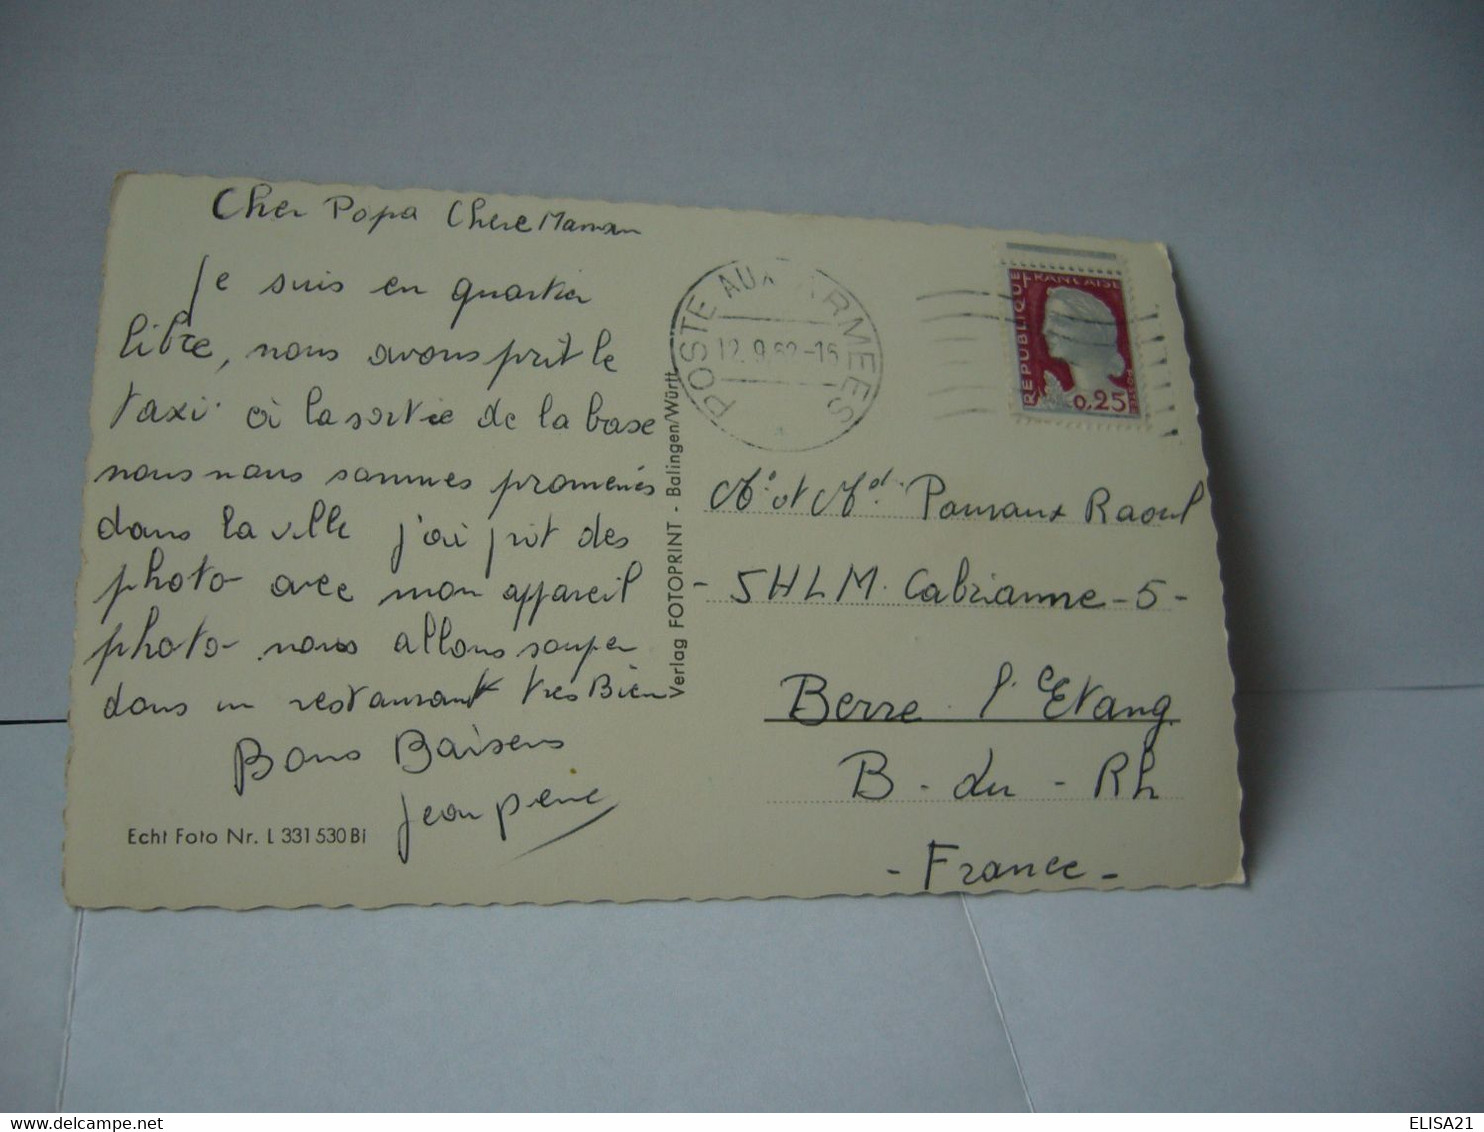 Cher Papa Chere Maman
Je suis en quartier
libre, nous avons prit le
taxi à la sortie de la base
nous nous sommes promenés
dans la ville j'ai prit des
photo avec mon appareil
photo nous allons souper
dans un restaurant tres Bien
Bons Baisers
Jean pierre
Echt Foto Nr. L 331 530 Bi
Verlag FOTOPRINT - Balingen/Württ.
POSTE AUX ARMEES
12.9.62-16
REPUBLIQUE FRANCAISE
POSTES
0,25
Mr et Md. Raoul
- 5 HLM. Cabrianne - 5 -
Berre l'Etang
B - du - Rh
- France -
ELISA21